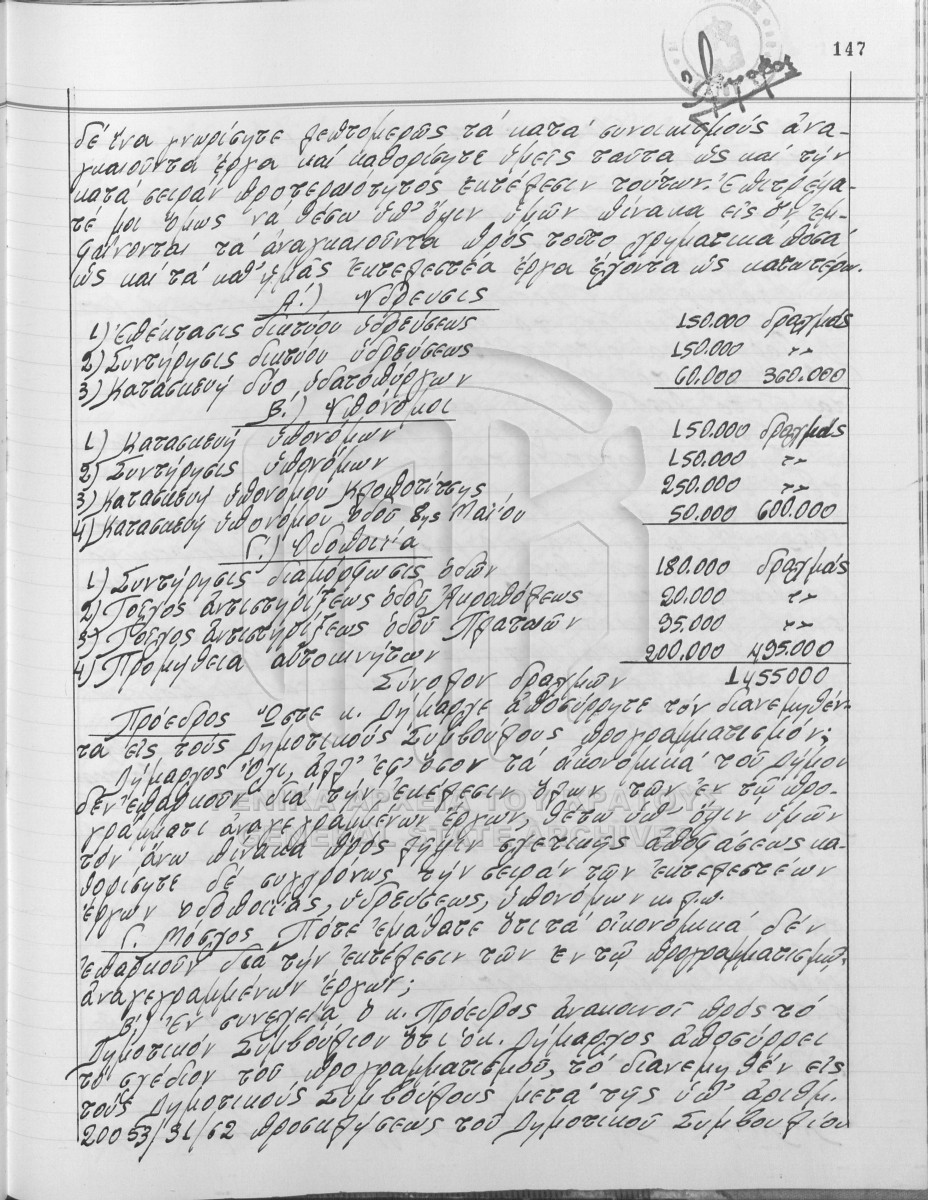 147
δέ ἵνα γνωρίσητε λεπτομερῶς τά κατά συνοικισμούς ἀνα-
γκαιοῦντα ἔργα καί καθορίσητε ὑμεῖς ταῦτα ὡς καί τήν
κατά σειράν προτεραιότητος ἐκτέλεσιν τούτων. Ἐπιτρέψα-
τέ μοι ὅμως νά θέσω ὑπ' ὄψιν ὑμῶν πίνακα εἰς ὅν ἐμ-
φαίνονται τά ἀναγκαιοῦντα πρός τοῦτο χρηματικά ποσά
ὡς καί τά καθ' ἡμᾶς ἐκτελεστέα ἔργα ἔχοντα ὡς κατωτέρω.
Α.) Ὕδρευσις
1) Ἐπέκτασις δικτύου ὑδρεύσεως 150.000 δραχμάς
2) Συντήρησις δικτύου ὑδρεύσεως 150.000 〃
3) Κατασκευή δύο ὑδατοπύργων 60.000 360.000
Β.) Ὑπόνομοι
1) Κατασκευή ὑπονόμων 150.000 δραχμάς
2) Συντήρησις ὑπονόμων 150.000 〃
3) Κατασκευή ὑπονόμου Κλοποτίτσης 250.000 〃
4) Κατασκευή ὑπονόμου ὁδοῦ 8ης Μαΐου 50.000 600.000
Γ.) Ὁδοποιία
1) Συντήρησις διαμόρφωσις ὁδῶν 180.000 δραχμάς
2) Τοῖχος ἀντιστηρίξεως ὁδοῦ Ἀκροπόλεως 20.000 〃
3) Τοῖχος ἀντιστηρίξεως ὁδοῦ Πλαταιῶν 95.000 〃
4) Προμήθεια αὐτοκινήτων 200.000 495.000
Σύνολον δραχμῶν 1455000
Πρόεδρος Ὥστε κ. Δήμαρχε ἀποσύρρητε τόν διανεμηθέν-
τα εἰς τούς Δημοτικούς Συμβούλους προγραμματισμόν;
Δήμαρχος Ὄχι, ἀλλ' ἐφ' ὅσον τά οἰκονομικά τοῦ Δήμου
δέν ἐπαρκοῦν διά τήν ἐκτέλεσιν ὅλων τῶν ἐν τῷ προ-
γράμματι ἀναγεγραμμένων ἔργων, θέτω ὑπ' ὄψιν ὑμῶν
τόν ἄνω πίνακα πρός λῆψιν σχετικῆς ἀποφάσεως κα-
θορίσητε δέ συγχρόνως τήν σειράν τῶν ἐκτελεστέων
ἔργων ὁδοποιίας, ὑδρεύσεως, ὑπονόμων κ.λ.π.
Γ. Μόσχος, Πότε ἐμάθατε ὅτι τά οἰκονομικά δέν
ἐπαρκοῦν διά τήν ἐκτέλεσιν τῶν ἐν τῷ προγραμματισμῷ
ἀναγεγραμμένων ἔργων;
Β.) Ἐν συνεχεία ὁ κ. Πρόεδρος ἀνακοινοῖ πρός τό
Δημοτικόν Συμβούλιον ὅτι ὁ κ. Δήμαρχος ἀποσύρρει
τό σχέδιον τοῦ προγραμματισμοῦ, τό διανεμηθέν εἰς
τούς Δημοτικούς Συμβούλους μετά τῆς ὑπ' ἀριθμ.
20053/31/62 προσκλήσεως τοῦ Δημοτικοῦ Συμβουλίου
ΓΕΝΙΚΑ ΑΡΧΕΙΑ ΤΟΥ ΚΡΑΤΟΥΣ
GENERAL STATE ARCHIVES